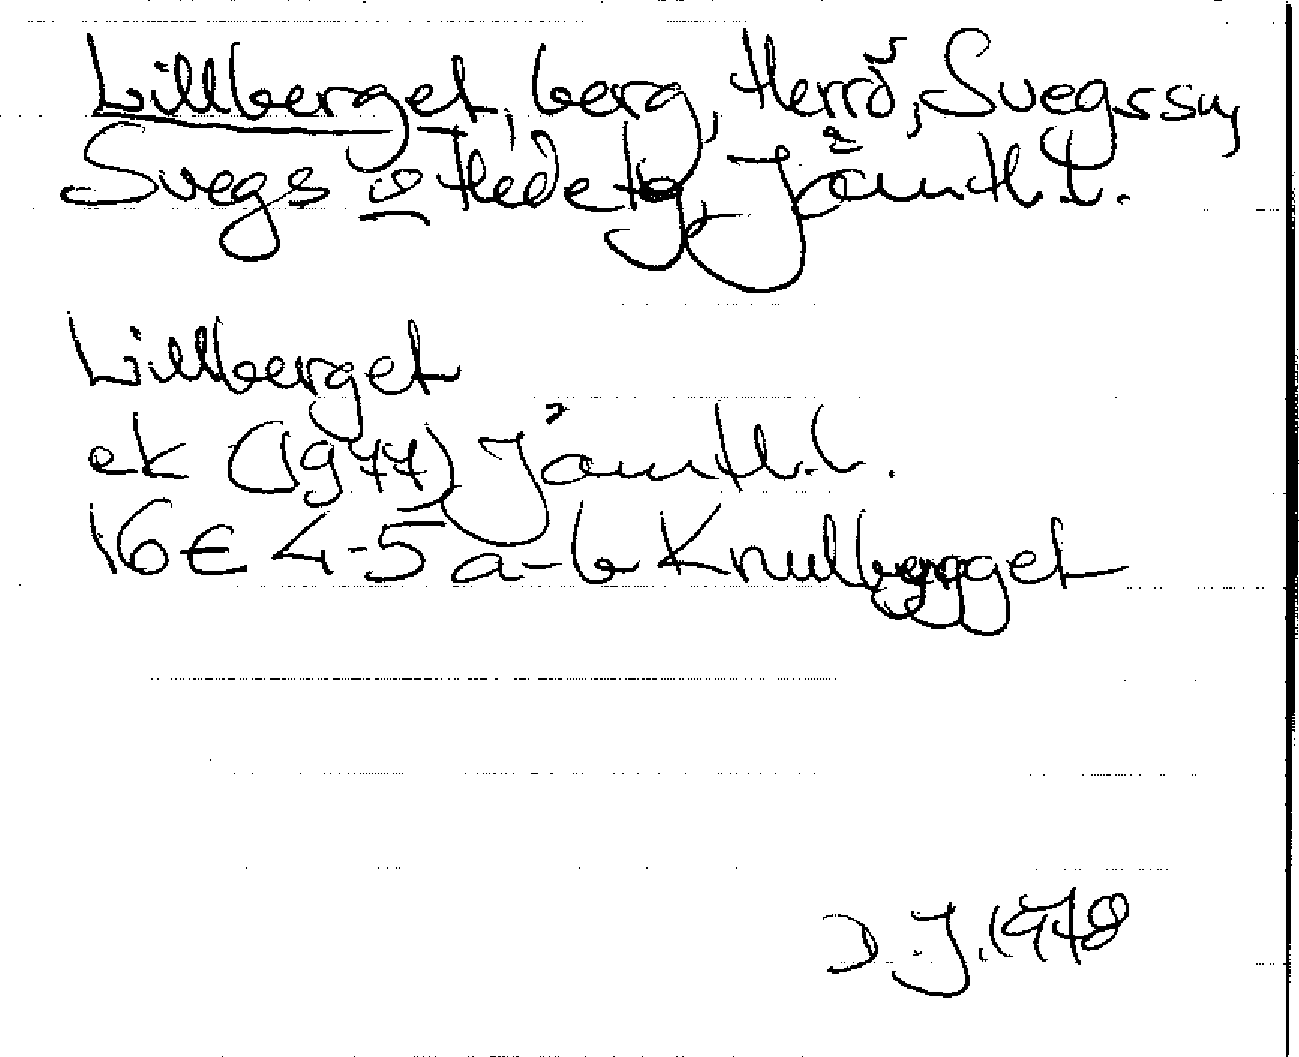 Lillberget, berg, Herrö, Svegs sn,
Svegs o Hede tg, Jämtl.l.
Lillberget
ek (1977) Jämtl.l.
16E 4-5 a-b Knullberget
D.J. 1978